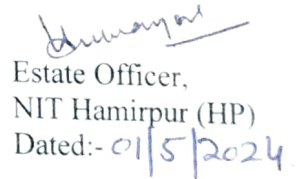 Estate Officer,
NIT Hamirpur (HP)
Dated:- 01/5/2024